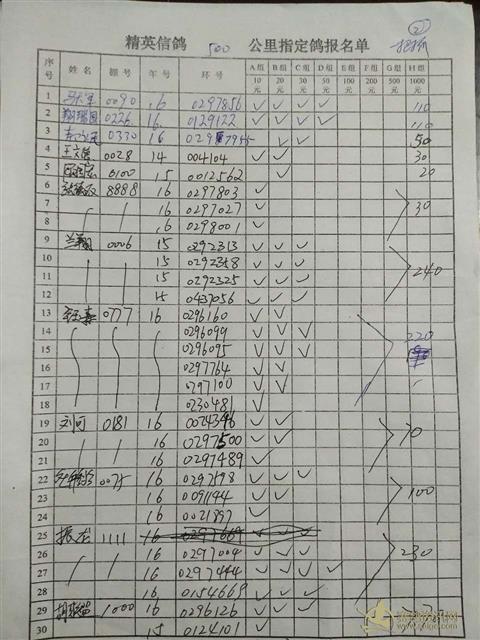 ②
精英信鸽 500 公里指定鸽报名单
序号 姓名 棚号 年号 环号 A组 B组 C组 D组 E组 F组 G组 H组
10元 20元 30元 50元 100元 200元 500元 1000元
1 0090 16 0297856 ✓ ✓ ✓ ✓ 110
2 0226 16 0129122 ✓ ✓ ✓ ✓ 110
3 0330 16 ✓ ✓ 50
4 王文 0028 14 004104 ✓ ✓ 30
5 0100 15 0012562 ✓ 20
6 8888 16 0297803 ✓
7 16 0297027 ✓ 30
8 16 0298001 ✓
9 兰翔 0006 15 0292313 ✓ ✓ ✓
10 15 0292358 ✓ ✓ ✓ 240
11 15 0292325 ✓ ✓ ✓
12 15 0437056 ✓ ✓ ✓
13 0777 16 0296160 ✓ ✓
14 16 0296099 ✓ ✓ ✓ 220
15 16 0296095 ✓ ✓ ✓
16 16 0297764 ✓ ✓
17 16 0297100 ✓ ✓
18 023048 ✓
19 刘可 0181 16 0024346 ✓ ✓
20 16 0297500 ✓ ✓ 70
21 16 0297489 ✓
22 0075 16 0297598 ✓ ✓ ✓
23 16 0091144 ✓ ✓ 100
24 16 0021897 ✓
25 振龙 1111 16
26 16 0297004 ✓ ✓ ✓ 230
27 16 0297444 ✓ ✓ ✓
28 16 0154669 ✓ ✓ ✓
29 1000 16 0296126 ✓ ✓ ✓
30 15 0124101 ✓